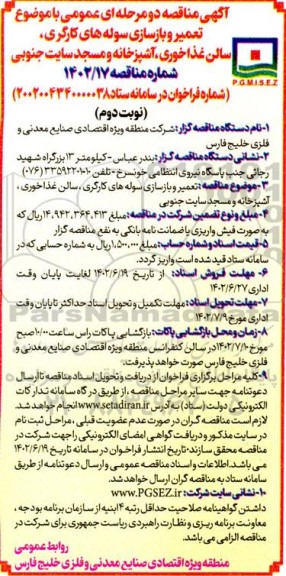 آگهی مناقصه دو مرحله ای عمومی با موضوع
تعمیر و بازسازی سوله های کارگری،
سالن غذاخوری،آشپزخانه و مسجد سایت جنوبی
شماره مناقصه ۱۴۰۲/۱۷
(شماره فراخوان در سامانه ستاد ۲۰۰۲۰۰۴۳۴۰۰۰۰۰۳۸)
(نوبت دوم)
P.G.M.I.S.E.Z
۱-نام دستگاه مناقصه گزار: شرکت منطقه ویژه اقتصادی صنایع معدنی و
فلزی خلیج فارس
۲-نشانی دستگاه مناقصه گزار: بندرعباس-کیلومتر ۱۳ بزرگراه شهید
رجائی جنب پاسگاه نیروی انتظامی خونسرخ-تلفن ۱۰-۳۳۵۹۲۲۰۱ (۰۷۶)
۳-موضوع مناقصه: تعمیر و بازسازی سوله های کارگری ،سالن غذاخوری ،
آشپزخانه و مسجد سایت جنوبی
۴-مبلغ و نوع تضمین شرکت در مناقصه: مبلغ ۱۴،۹۴۲،۳۶۴،۴۱۳ ریال که
به صورت فیش واریزی یا ضمانت نامه بانکی به نفع مناقصه گزار
۵-قیمت اسناد و شماره حساب: مبلغ ۱،۵۰۰،۰۰۰ ریال به شماره حسابی که در
سامانه ستاد قید شده است واریز گردد.
۶- مهلت فروش اسناد: از تاریخ ۱۴۰۲/۶/۱۹ لغایت پایان وقت
اداری ۱۴۰۲/۶/۲۷
۷-مهلت تحویل اسناد: مهلت تکمیل و تحویل اسناد حداکثر تا پایان وقت
اداری مورخ ۱۴۰۲/۷/۹
۸-زمان و محل بازگشایی پاکات: بازگشایی پاکات راس ساعت ۱۰:۰۰ صبح
مورخ ۱۴۰۲/۷/۱۰ در سالن کنفرانس منطقه ویژه اقتصادی صنایع معدنی و
فلزی خلیج فارس صورت خواهد پذیرفت.
۹-کلیه مراحل برگزاری فراخوان از دریافت و تحویل اسناد مناقصه تا ارسال
دعوتنامه جهت سایر مراحل، از طریق درگاه سامانه تدارکات
الکترونیکی دولت (ستاد) به آدرس www.setadiran.ir انجام خواهد شد.
لازم است مناقصه گران در صورت عدم عضویت قبلی ، مراحل ثبت نام
در سایت مذکور و دریافت گواهی امضای الکترونیکی را جهت شرکت در
مناقصه محقق سازند.تاریخ انتشار فراخوان در سامانه تاریخ ۱۴۰۲/۶/۱۹
می باشد.اطلاعات و اسناد مناقصه عمومی و ارسال دعوتنامه از طریق
سامانه ستاد به مناقصه گران ارسال خواهد شد.
۱۰-نشانی سایت شرکت: www.PGSEZ.ir
داشتن گواهینامه صلاحیت حداقل رتبه ۴ ابنیه از سازمان برنامه بودجه ،
معاونت برنامه ریزی و نظارت راهبردی ریاست جمهوری برای شرکت در
مناقصه الزامی می باشد.
روابط عمومی
منطقه ویژه اقتصادی صنایع معدنی و فلزی خلیج فارس